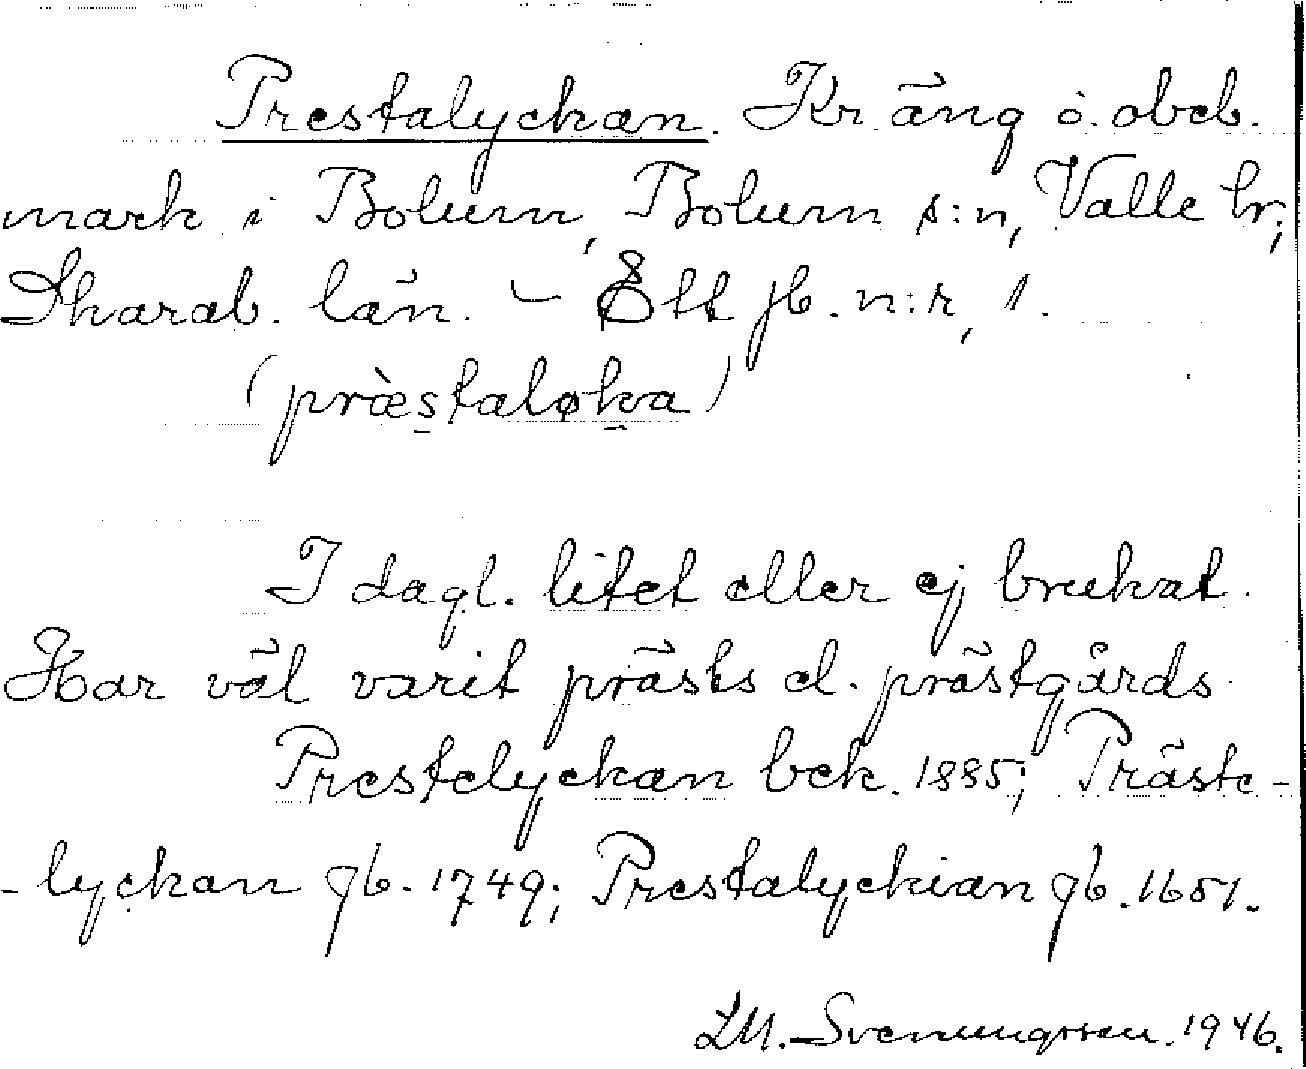 Prestalyckan. Kr. äng o. obeb.
mark i Bolum, Bolum s:n, Valle hr;
Skarab. län. – Ett jb. n:r, 1.
(præ̀staløka)
I dagl. litet eller ej brukat.
Har väl varit prästs el. prästgårds.
Prestelyckan bek. 1885; Präste-
-lyckan jb. 1749; Prestalyckian jb. 1651.
L.M. Svenungsson. 1946.